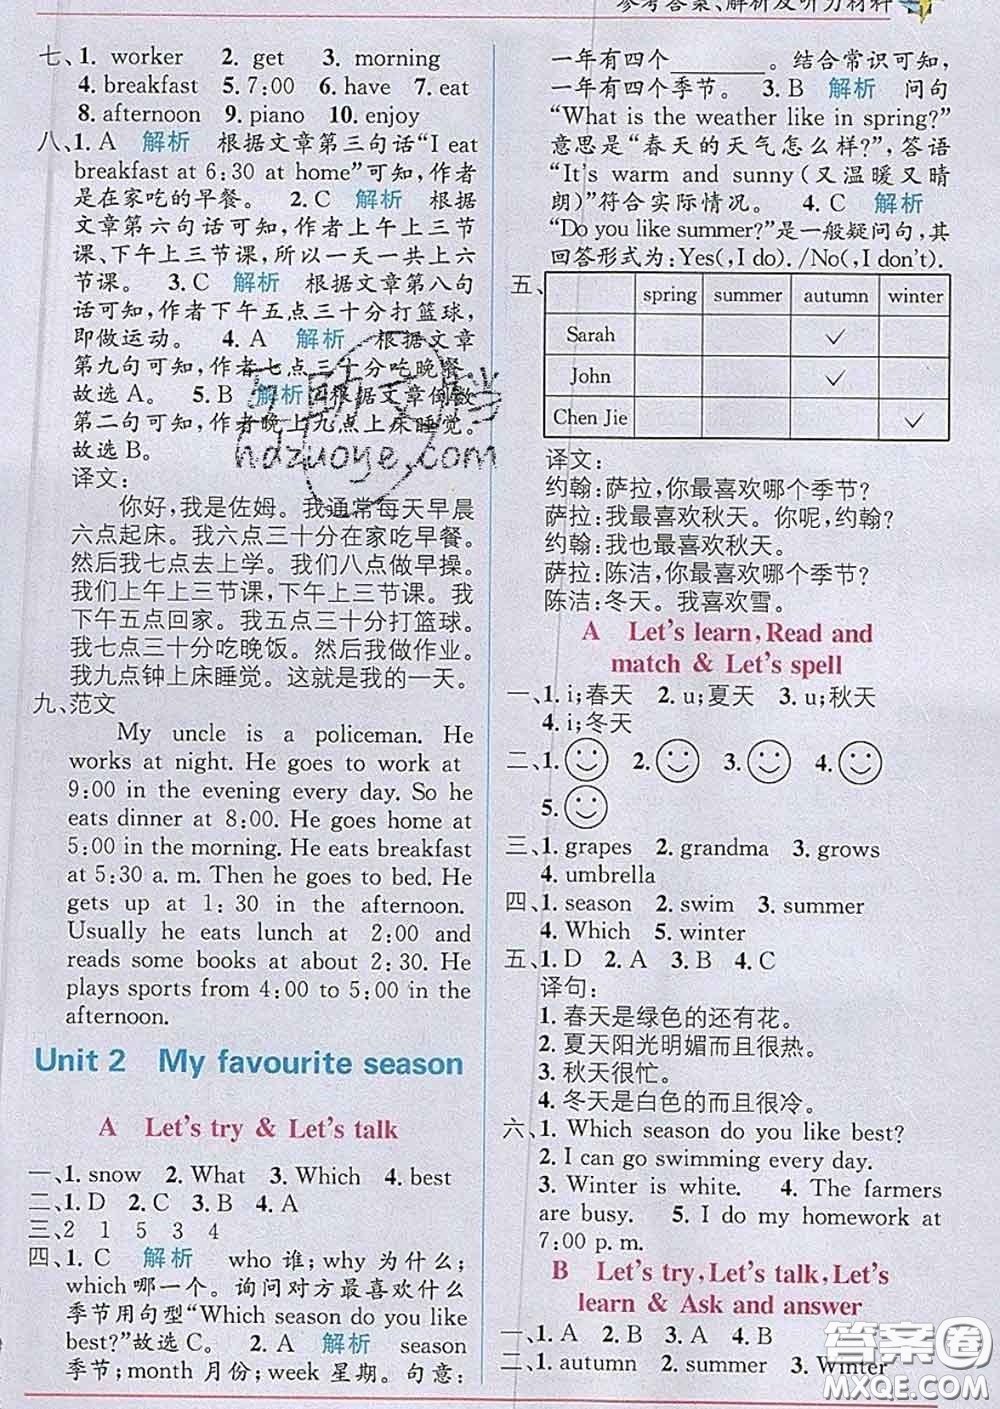 参考答案、解析及听力材料
七、1. worker 2. get 3. morning
4. breakfast 5. 7:00 6. have 7. eat
8. afternoon 9. piano 10. enjoy
八、1. A 解析 根据文章第三句话“I eat
breakfast at 6:30 at home”可知,作者
是在家吃的早餐。 2. C 解析 根据
文章第六句话可知,作者上午上三节
课、下午上三节课,所以一天一共上六
节课。 3. C 解析 根据文章第八句
话可知,作者下午五点三十分打篮球,
即做运动。 4. A 解析 根据文章
第九句可知,作者七点三十分吃晚餐。
故选A。 5. B 解析 根据文章倒数
第二句可知,作者晚上九点上床睡觉。
故选B。
译文:
你好,我是佐姆。我通常每天早晨
六点起床。我六点三十分在家吃早餐。
然后我七点去上学。我们八点做早操。
我们上午上三节课,下午上三节课。我
下午五点回家。我五点三十分打篮球。
我七点三十分吃晚饭。然后做作业。
我九点钟上床睡觉。这就是我的一天。
九、范文
My uncle is a policeman. He
works at night. He goes to work at
9:00 in the evening every day. So he
eats dinner at 8:00. He goes home at
5:00 in the morning. He eats breakfast
at 5:30 a. m. Then he goes to bed. He
gets up at 1:30 in the afternoon.
Usually he eats lunch at 2:00 and
reads some books at about 2:30. He
plays sports from 4:00 to 5:00 in the
afternoon.
Unit 2 My favourite season
A Let's try & Let's talk
一、1. snow 2. What 3. Which 4. best
二、1. D 2. C 3. B 4. A
三、2 1 5 3 4
四、1. C 解析 who 谁;why 为什么;
which哪一个。询问对方最喜欢什么
季节用句型“Which season do you like
best?”故选C。 2. A 解析 season
季节;month 月份;week 星期。句意:
一年有四个________。结合常识可知,
一年有四个季节。 3. B 解析 问句
“What is the weather like in spring?”
意思是“春天的天气怎么样?”,答语
“It's warm and sunny(又温暖又晴
朗)”符合实际情况。 4. C 解析
“Do you like summer?”是一般疑问句,其
回答形式为:Yes(,I do). /No(,I don't).
五、 spring summer autumn winter
Sarah ✓
John ✓
Chen Jie ✓
译文:
约翰:萨拉,你最喜欢哪个季节?
萨拉:我最喜欢秋天。你呢,约翰?
约翰:我也最喜欢秋天。
萨拉:陈洁,你最喜欢哪个季节?
陈洁:冬天。我喜欢雪。
A Let's learn, Read and
match & Let's spell
一、1. i;春天 2. u;夏天 3. u;秋天
4. i;冬天
二、1. 2. 3. 4.
5.
三、1. grapes 2. grandma 3. grows
4. umbrella
四、1. season 2. swim 3. summer
4. Which 5. winter
五、1. D 2. A 3. B 4. C
译句:
1. 春天是绿色的还有花。
2. 夏天阳光明媚而且很热。
3. 秋天很忙。
4. 冬天是白色的而且很冷。
六、1. Which season do you like best?
2. I can go swimming every day.
3. Winter is white. 4. The farmers
are busy. 5. I do my homework at
7:00 p. m.
B Let's try, Let's talk, Let's
learn & Ask and answer
一、1. A 2. B 3. A 4. B
二、1. autumn 2. summer 3. Winter
互助文档
hdzuoye.com
答案圈
MXQE.COM